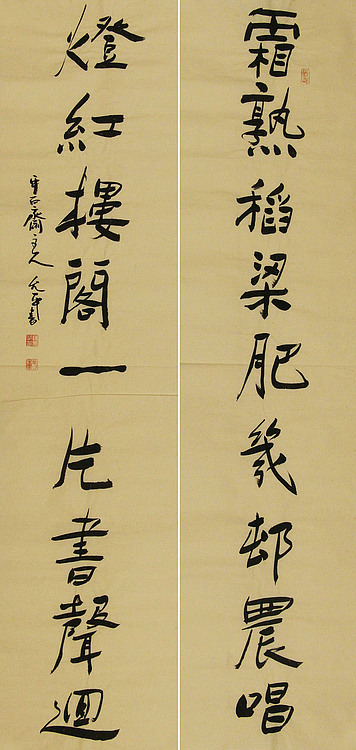 霜熟稻梁肥幾邨農唱
燈紅樓閣一片書聲迴
石齋主人 書